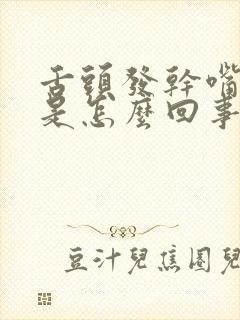 舌頭發幹嘴
是怎麼回事
豆汁兒焦圈兒